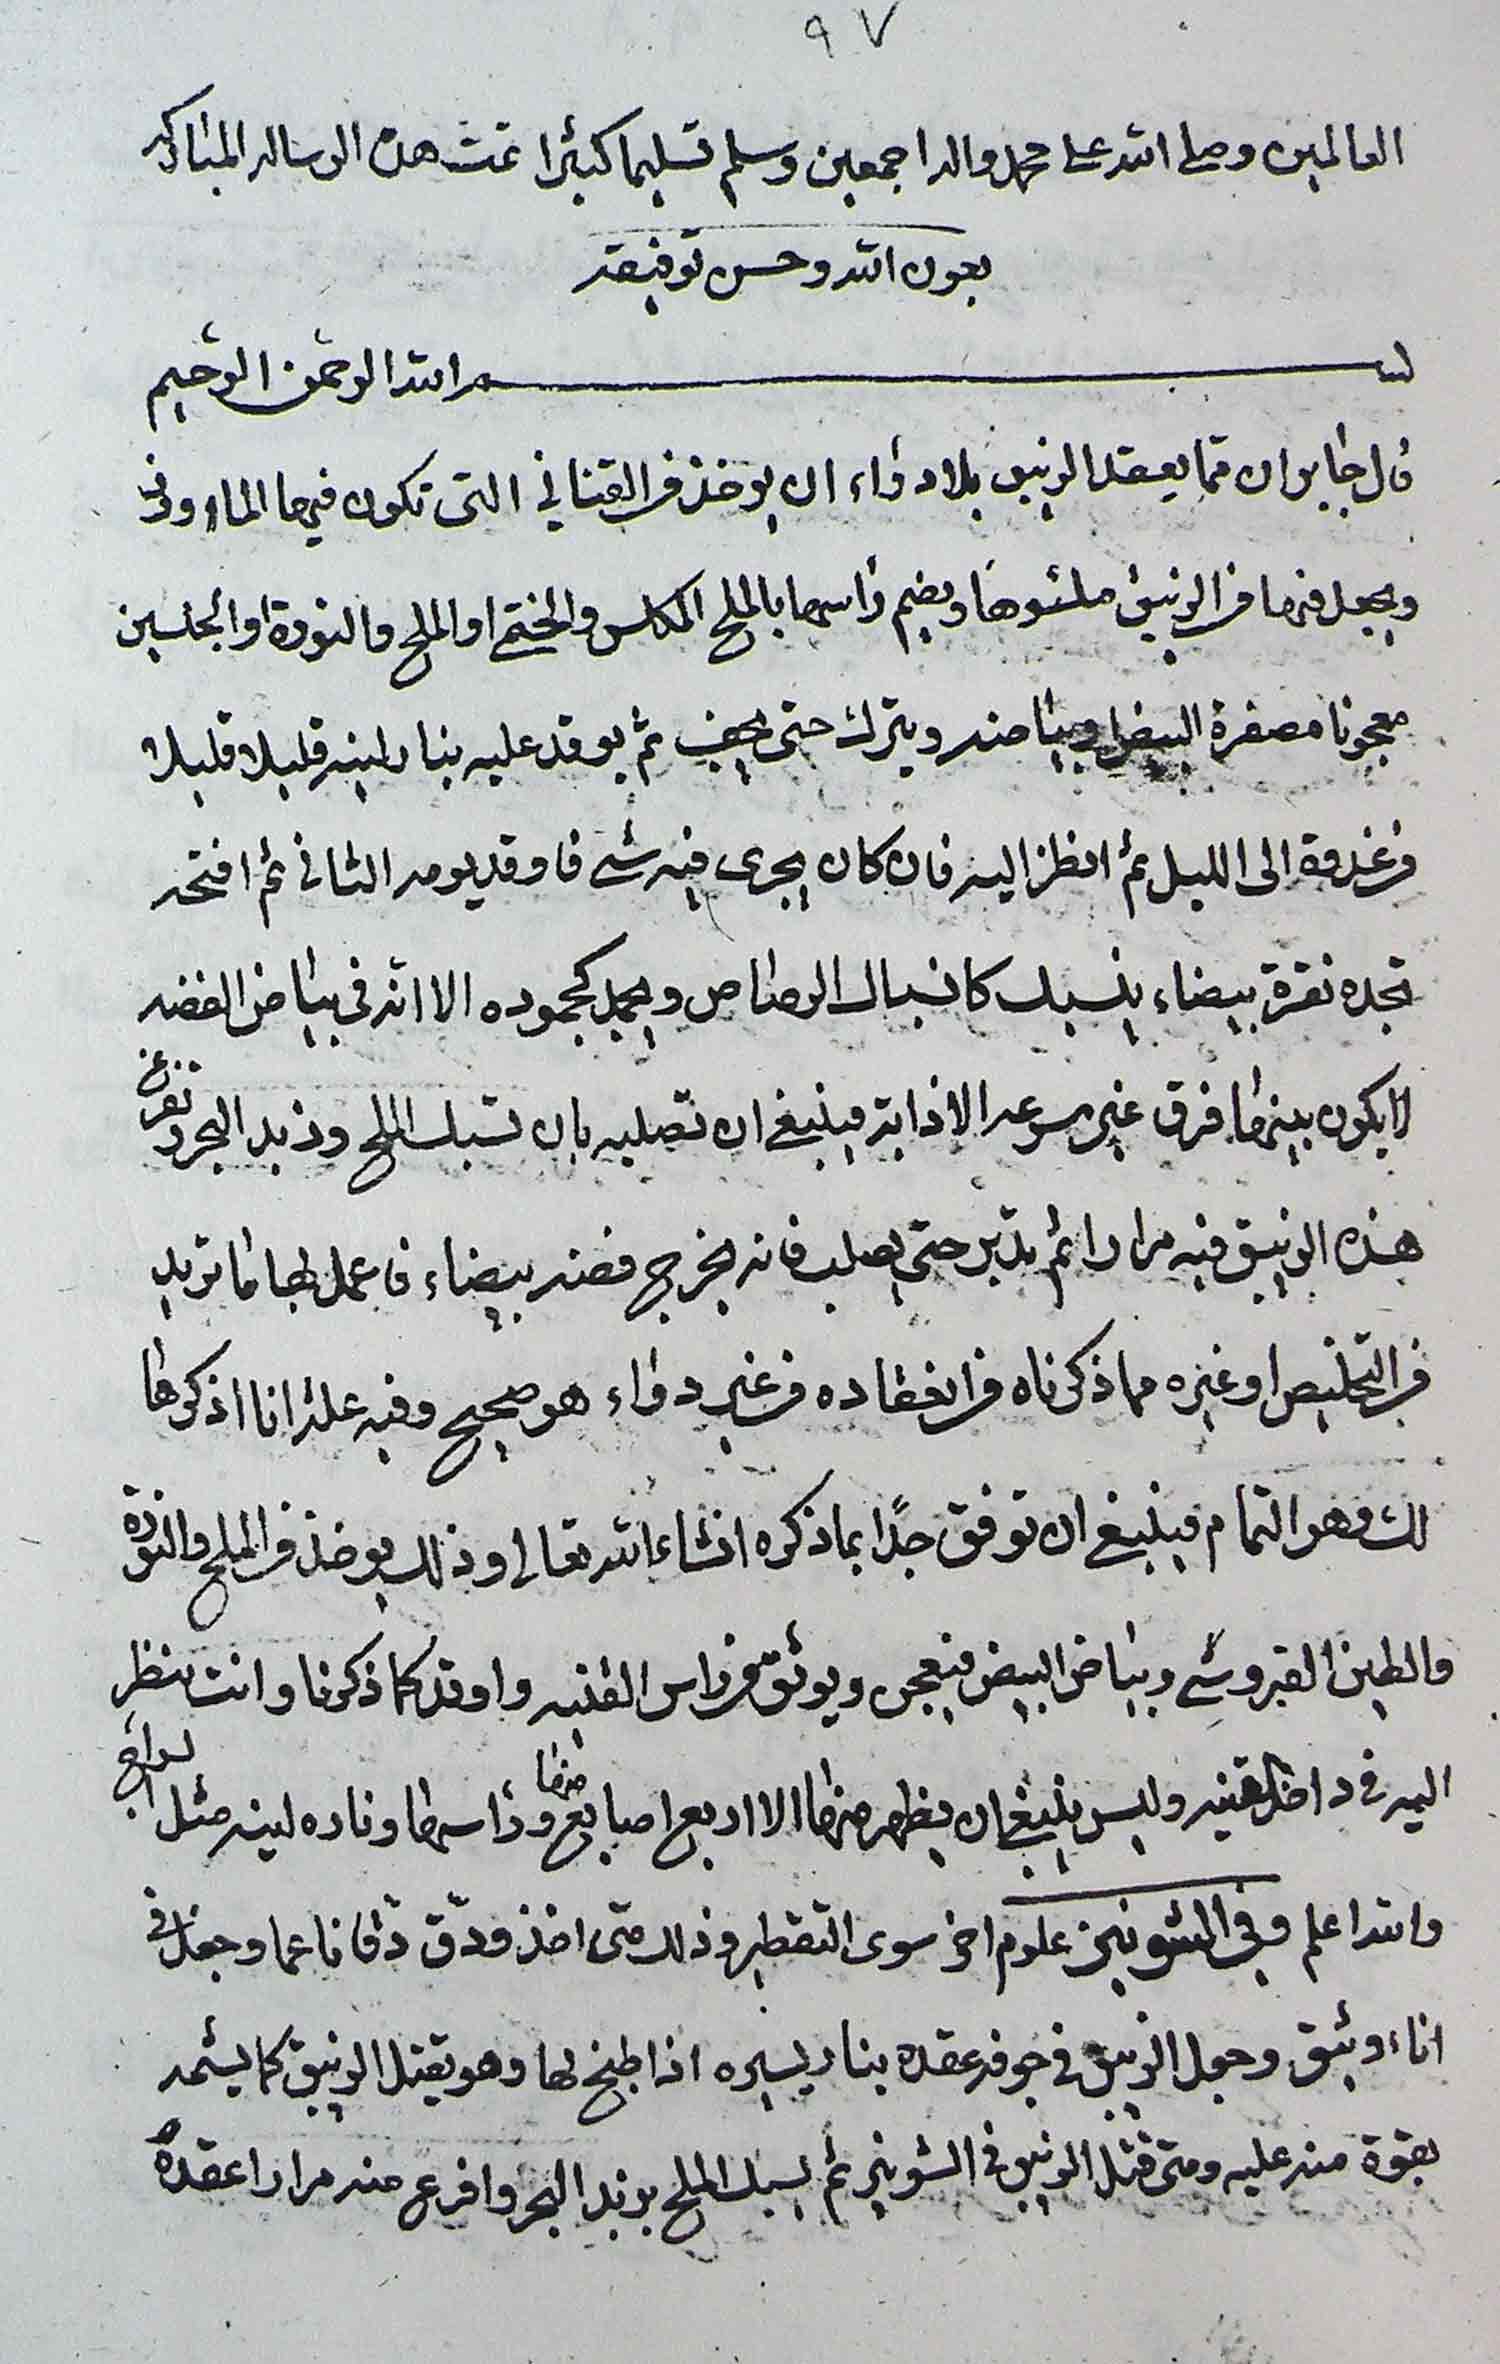 ٩٧
العالمين وصلى الله على محمد واله اجمعين وسلم تسليما كثيرا تمت هذه الرساله المباركه
بعون الله وحسن توفيقه
بسم الله الرحمن الرحيم
قال جابر ان مما يعقد الزيبق بلا دواء ان يوخذ من القناني التى تكون فيها الماورد
ويجعل فيها من الزيبق ملئوها ويضم راسها بالملح المكلس والختم او الملح والنورة او الجبسين
معجونا مصفرة البيض وبياضه ويترك حتى يجف ثم يوقد عليه بنار لينه قليلا قليلا
من غدوة الى الليل ثم انظر اليه فان كان يجرى فيه شى فاوقد يومه الثانى ثم افتحه
تجده نقرة بيضاء ينسبك كانسباك الرصاص ويجمد كجموده الا انه فى بياض الفضه
لا يكون بينهما فرق غير سرعه الاذابة فينبغى ان تصلبه بان تسبك الملح وزبد البحر وتفرغ
هذه الزيبق فيه مرارا ثم يدبر حتى يصلب فانه يخرج فضه بيضاء فاعمل بها ما تريد
من التخليص او غيره مما ذكرناه من انعقاده من غير دواء هو صحيح وفيه عله انا اذكرها
لك وهو التمام فينبغى ان توفق جدًا بما ذكره انشاء الله تعالى وذلك يوخذ من الملح والنورة
والطين القبروسى وبياض البيض فيعجن ويوثق من راس القنينه واوقد كما ذكرنا وانت تنظر
اليه فى داخل القنينه وليس ينبغى ان يظهر منها الا اربع اصابع منها وراسها وناره لينه مثل السراج
والله اعلم وفى الشونيز علوم اخر سوى التقطير وذلك متى اخذ ودق دقا ناعما وجعل فى
اناء وثيق وجعل الزيبق فى جوفه عقده بنار يسيره اذا طبخ لها وهو يقتل الزيبق كما يشمه
بقوة منه عليه ومتى قتل الزيبق فى الشونيز ثم يسبك الملح بزبد البحر وافرغ منه مرارا عقده